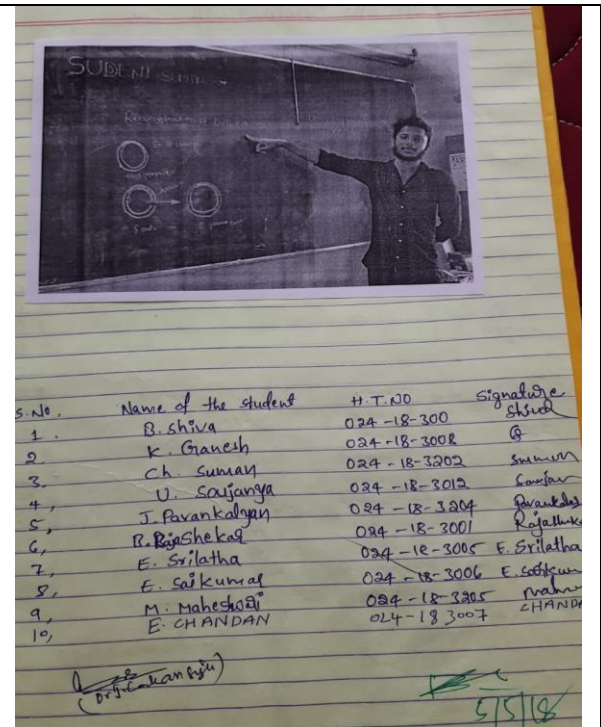 SUDENT SEMINAR
Recombinant DNA
S.No. Name of the student H.T.NO Signature
1. B. Shiva 024-18-300 Shiva
2 K. Ganesh 024-18-3008 G
3, Ch. Suman 024-18-3202 Suman
4, U. Soujanya 024-18-3012 Soujan
5, J. Pavankalyan 024-18-3204 Pavankalyan
6, R. RajaShekar 024-18-3001
7, E. Srilatha 024-18-3005 E. Srilatha
8, E. Saikumar 024-18-3006 E. Saikum
9, M. Maheshwari 024-18-3205 Mahe
10, E. CHANDAN 024-18 3007 CHANDA
5/5/18